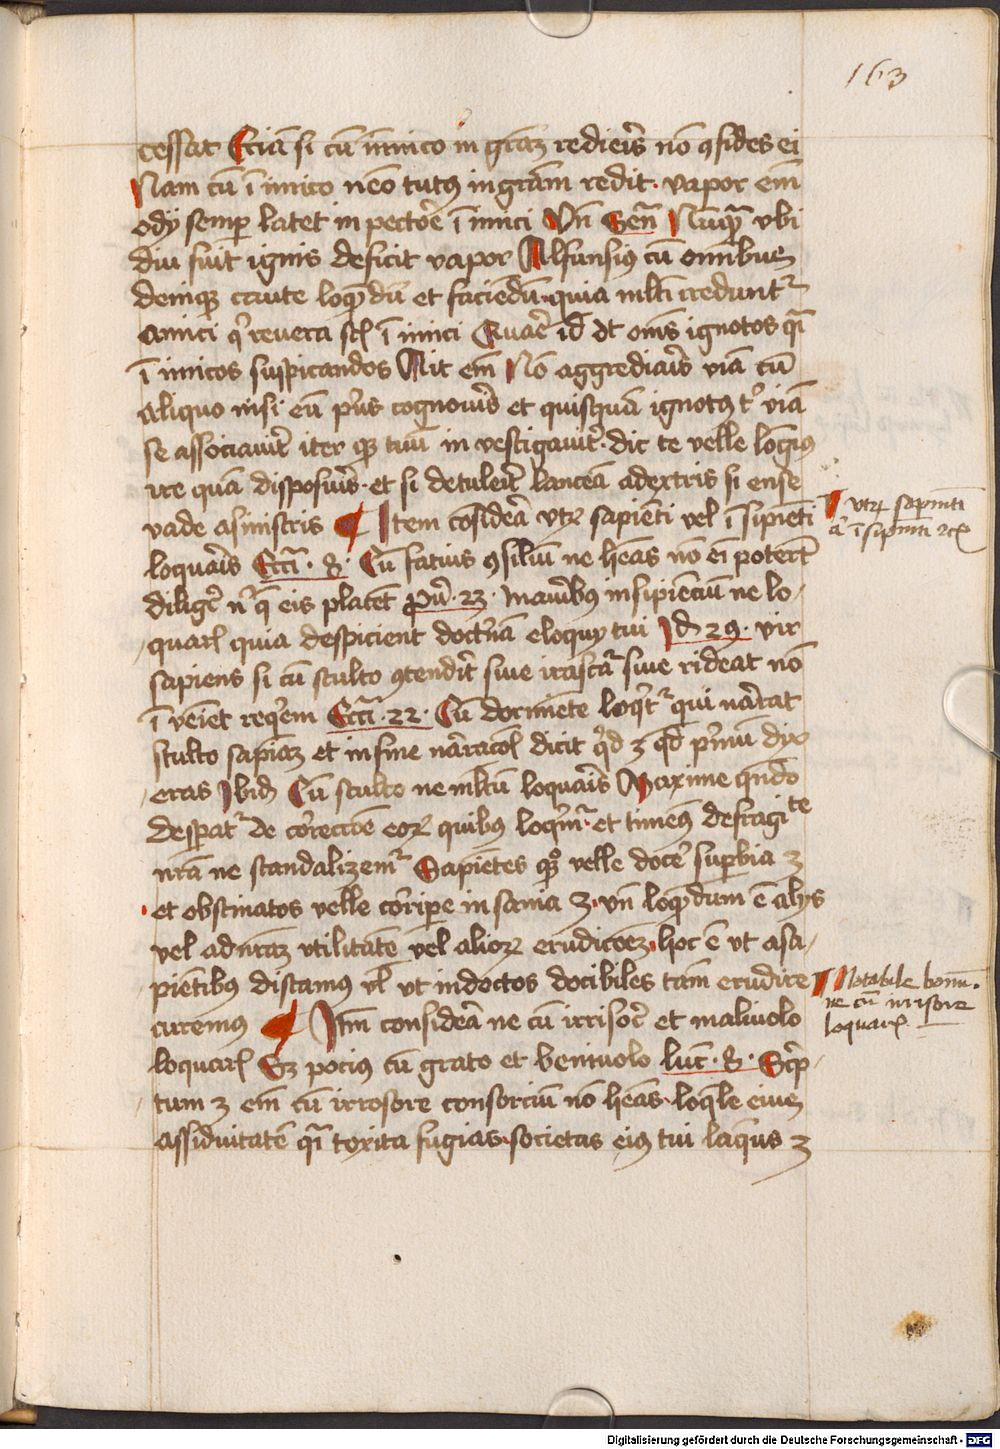 163
cessat Eciā si cū inimico in grāz redieris nō ɔfides ei
Nam cū īimico nēo tutꝰ in grām redit · vapor em̄
ody semꝑ latet in pectore īimici Vn̄ Sen̄ Nūqꝫ vbi
diu fuit ignis deficit vapor Alfunsiꝰ cū omnibus
deniqꝫ caute loquēdū et faciēdū quia ml̄ti credunt᷑
amici qͥ reuera sūt īimici Quare id̄ dt oīns ignotos qͣi
īimicos suspicandos Ait em̄ Nō aggrediaris viā cū
aliquo nisi eū pͥus cognoueris et quisquā ignotꝰ tͥ viā
se associauit̄ iter qꝫ tuū inuestigauit̄ · dic te velle lōgiꝰ
ire quā disposuis · et si detulerit lanceā adextris si ense
vade asinistris ¶ Item cōsidera vtꝝ sapiēti vel īsipiēti
loquaris Ecci · 8 · Cū fatuis ɔsiliū ne heās nō em̄ poterūt
diligē nͥ q̄ eis placēt Pu̅ · 23 · In auribꝰ insipienciū ne lo
quaris quia despicient doctͥnā eloquy tui Id 29 · vir
sapiens si cū stulto ɔtenderit siue irascat᷑ siue rideat nō
īueniet requiem Ecci · 22 · Cū dormiēte loqͥt᷑ qui narrat
stulto sapiāz et in fine narracōis dicit qͥd ꝫ qd pͥmū dyx
eras Ibid̄ Cū stulto ne ml̄tū loquaris Maxime qn̄do
desperat᷑ de correcōe eoꝝ quibus loqͥmur · et timemꝰ defragi te
nrā ne scandalizem᷑ Sapiētes qͦꝫ velle doce suꝑbia ꝫ
et obstinatos velle corripere insania ꝫ · vn̄ loquēdum ē alys
vel ad nr̄az vtilitatē vel alioꝝ erudicōez · hoc ē vt asa
piētibus discamus vl̄ vt indoctos docibiles tam̄ erudire
curemus ¶ Itm̄ considera ne cū irrisore et maliuolo
loquaris Sꝫ pociꝰ cū grato et beniuolo luc̄ · 8 · Scͥp
tum ꝫ em̄ cū irrosore consorciū nō heas · loqͣle eius
assiduitatē qͣi toxita fugias · societas eiꝰ tui laqueus ꝫ
¶ vtꝝ sapienti
aͭ īsipienti ⁊cͣ
¶ Notabile bonū ·
ne cū irrisore
loquaris
Digitalisierung gefördert durch die Deutsche Forschungsgemeinschaft - DFG